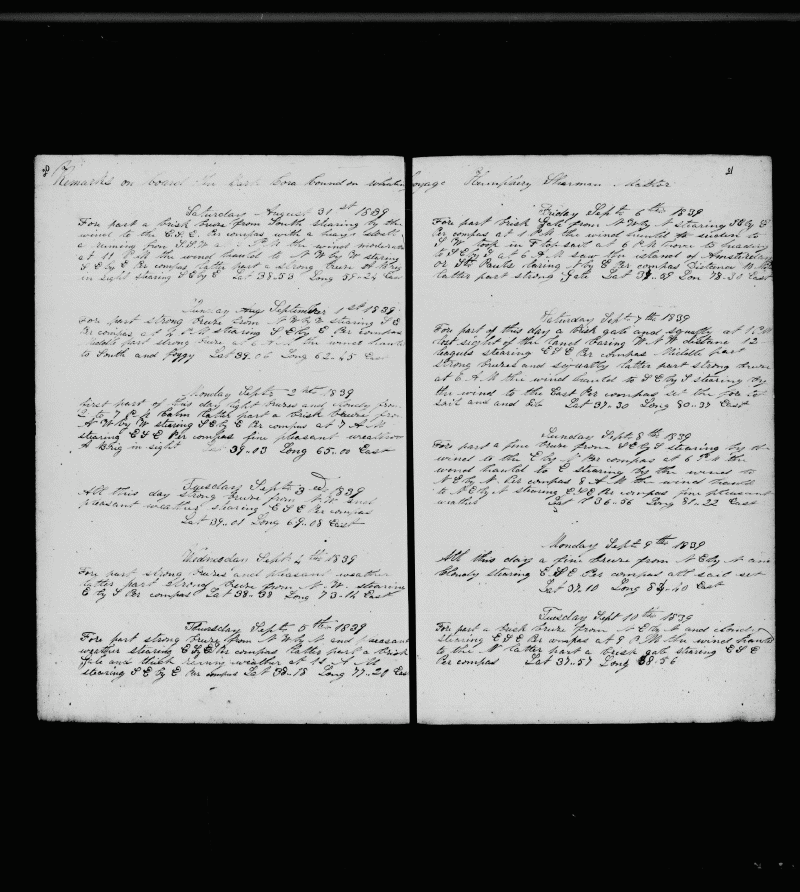 Remarks on board the Bark Cora bound on whaling
Saturday August 31 st 1839
Fore part a brisk breeze from South stearing by the
wind to the E S E Per compas with a heavy
a runing from S S W P M the wind moderate
at 11 P M the wind hauled to N W by W stearing
S E by E Per compas latter part a strong breeze A Brig
in sight stearing S E by E Lat 38-53 Long 59-24 East
Sunday September 1 st 1839
Fore part strong breeze from N W b W stearing S E
Per compas at 4 P M stearing S E by E Per compas
Middle part strong breeze at 6 A M the wind hauld
to South and foggy Lat 39.06 Long 62-25 East
Monday Sept 2 nd 1839
first part of this day light breezes and cloudy from
2 to 7 P M calm latter part a brisk breeze from
N W by W stearing S E by E Per compas at 7 A M
stearing E S E Per compas fine pleasant weather
A Brig in sight Lat 39-03 Long 65-00 East
Tuesday Sept 3 ed 1839
All this day strong breeze from N W and
pleasant weather stearing E S E Per compas
Lat 39-01 Long 69-08 East
Wednesday Sept 4 th 1839
Fore part strong breezes and pleasant weather
latter part strong breeze from N. W. stearing
E by S Per compas Lat 38-38 Long 73-14 East
Thursday Sept 5 th 1839
Fore part strong breeze from N W by N and pleasant
weather stearing E S E Per compas latter part a brisk
gale and thick rainy weather at 11 A M
stearing S E by E Per compas Lat 38-18 Long 77-20 East
voyage Humphrey Shearman Master
21
Friday Sept 6 th 1839
Fore part brisk Gale from N W by N stearing S E by E
Per compas at 1 P M the wind hauld to
S W took in F top sail at 6 P M hove to heading
to S E by S at 6 A M saw the island of Amsterdam
or St Pauls baring N by E Per compas Distance
latter part strong Gale Lat 38-48 Lon 78-30 East
Saturday Sept 7 th 1839
Fore part of this day a brisk gale and squally at 1 P M
lost sight of the land baring W N W distance 12
leagues stearing E S E Per compas Middle part
strong breezes and squally latter part strong breeze
at 6 A M the wind hauled to S E by S stearing by
the wind to the East Per compas set the fore to
sail and and Lat 37-30 Long 80-37 East
Sunday Sept 8 th 1839
Fore part a fine breeze from S E by S stearing by the
wind to the E by N Per compas at 6 P M the
wind hauled to E stearing by the wind to
N E by N Per compas 8 A M the wind hauld
to N E by N stearing E S E Per compas fine pleasant
weather Lat 36-56 Long 81-22 East
Monday Sept 9 th 1839
All this day a fine breeze from N E by N and
cloudy stearing E S E Per compas all sail set
Lat 37.10 Long 84-40 East
Tuesday Sept 10 th 1839
Fore part a brisk breeze from N E by N and
stearing E S E Per compas at 9 P M the wind hauld
to the N latter part a brisk gale stearing E S E
Per compas Lat 37-57 Long 88-56